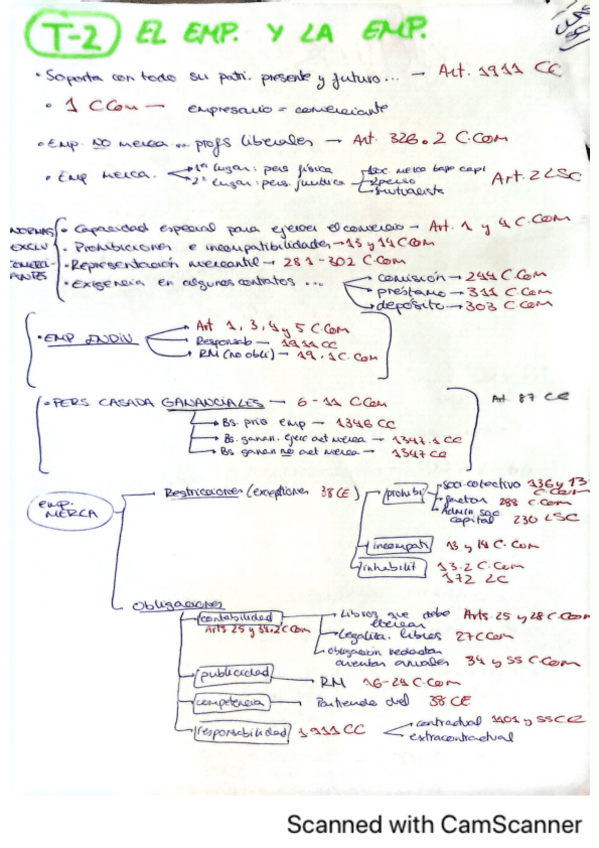 T-2 EL EMP. Y LA EMP.
• Soporta con todo su patri. presente y futuro... — Art. 1911 CC
• 1 CCom — empresario = comerciante
• Emp. NO merca... profs liberales — Art. 326.2 C.Com
• Emp merca.
1er lugar: pers física
2º lugar: pers. jurídica
Soc. merca base capi
2 perso
mutualista
Art. 2 LSC
NORMAS EXCLU
• Capacidad especial para ejercer el comercio — Art. 1 y 4 C.Com
• Prohibiciones e incompatibilidades — 13 y 14 C.Com
• Representación mercantil — 281-302 C.Com
• Exigencia en algunos contratos ...
comisión → 244 C.Com
préstamo → 311 C.Com
depósito → 303 C.Com
• EMP INDIV
Art 1, 3, 4 y 5 C.Com
Responsab — 1911 CC
RM (no obli) — 19.1 C.Com
• PERS CASADA GANANCIALES — 6-11 CCom
Art. 87 CE
Bs. prio emp — 1346 CC
Bs. ganan. ejerc act merca — 1347.1 CC
Bs ganan no act merca — 1347 CC
emp. MERCA
Restricciones (exceptiones 38 CE)
prohibi
soc. colectivo 136 y 13 C.Com
factor 288 C.Com
Admin soc capital 230 LSC
incompati 13 y 14 C.Com
inhabilit 13.2 C.Com
172 LC
Obligaciones
contabilidad
Arts 25 y C Com
Libros que debe llevar Arts. 25 y 28 C.Com
Legaliza. libros 27 CCom
obligación redactar cuentas anuales 34 y 55 C.Com
publicidad — RM 16-24 C.Com
competencia — Partiendo del 38 CE
responsabilidad 1911 CC
contractual 1101 y SS CC
extracontractual
Scanned with CamScanner